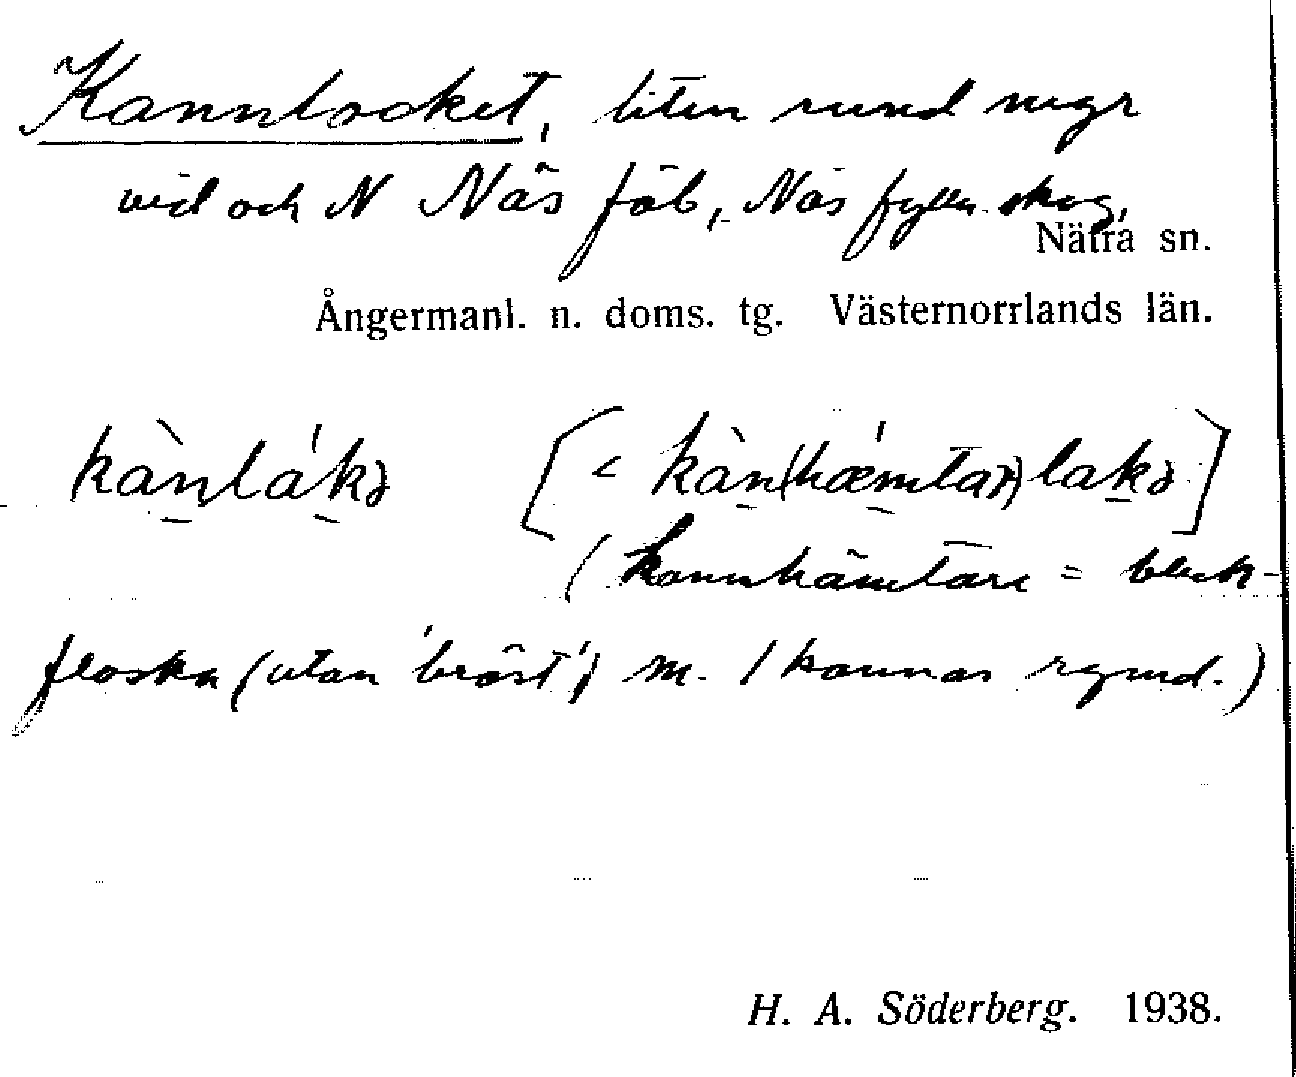 Kannlocket, liten rund myr
vid och N Näs fäb., Näs skog,
Nätra sn.
Ångermanl. n. doms. tg. Västernorrlands län.
kànlákə [< kàn(hæ´mtar)lakə]
(kannhämtare = bleck-
flaska (utan 'bröst') m. 1 kannas rymd.)
H. A. Söderberg. 1938.